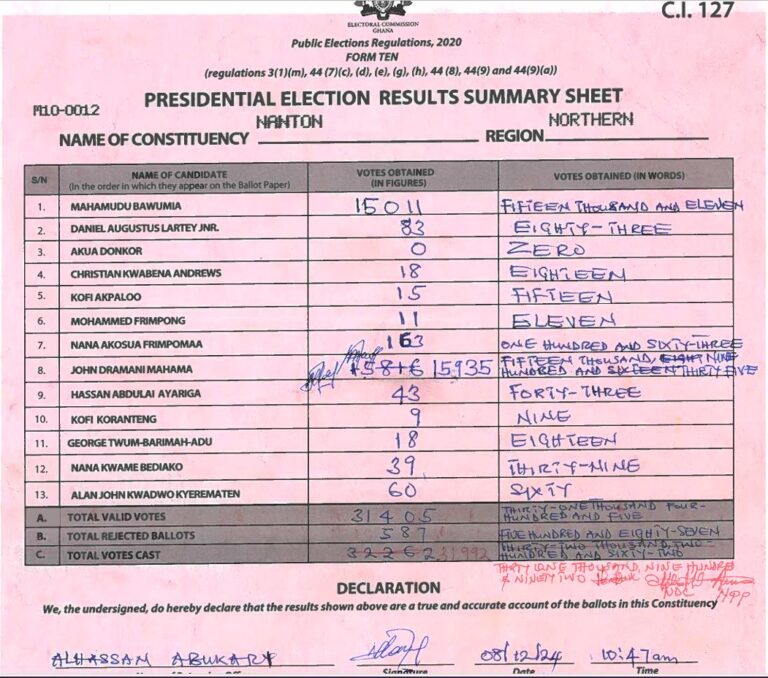 C.I. 127
ELECTORAL COMMISSION
GHANA
Public Elections Regulations, 2020
FORM TEN
(regulations 3(1)(m), 44 (7)(c), (d), (e), (g), (h), 44 (8), 44(9) and 44(9)(a))
M10-0012
PRESIDENTIAL ELECTION RESULTS SUMMARY SHEET
NAME OF CONSTITUENCY NANTON REGION NORTHERN
S/N NAME OF CANDIDATE (In the order in which they appear on the Ballot Paper) VOTES OBTAINED (IN FIGURES) VOTES OBTAINED (IN WORDS)
1. MAHAMUDU BAWUMIA 15011 FIFTEEN THOUSAND AND ELEVEN
2. DANIEL AUGUSTUS LARTEY JNR. 83 EIGHTY-THREE
3. AKUA DONKOR 0 ZERO
4. CHRISTIAN KWABENA ANDREWS 18 EIGHTEEN
5. KOFI AKPALOO 15 FIFTEEN
6. MOHAMMED FRIMPONG 11 ELEVEN
7. NANA AKOSUA FRIMPOMAA 163 ONE HUNDRED AND SIXTY-THREE
8. JOHN DRAMANI MAHAMA 15816 15935 FIFTEEN THOUSAND, EIGHT NINE
HUNDRED AND SIXTEEN THIRTY FIVE
9. HASSAN ABDULAI AYARIGA 43 FORTY-THREE
10. KOFI KORANTENG 9 NINE
11. GEORGE TWUM-BARIMAH-ADU 18 EIGHTEEN
12. NANA KWAME BEDIAKO 39 THIRTY-NINE
13. ALAN JOHN KWADWO KYEREMATEN 60 SIXTY
A. TOTAL VALID VOTES 31405 THIRTY-ONE THOUSAND FOUR-
HUNDRED AND FIVE
B. TOTAL REJECTED BALLOTS 587 FIVE HUNDRED AND EIGHTY-SEVEN
C. TOTAL VOTES CAST 32262 31992 THIRTY-TWO THOUSAND, TWO-
HUNDRED AND SIXTY-TWO
THIRTY ONE THOUSAND, NINE HUNDRED
& NINETY TWO
NDC NPP
DECLARATION
We, the undersigned, do hereby declare that the results shown above are a true and accurate account of the ballots in this Constituency
ALHASSAN ABUKARI 08/12/24 10:47am
Signature Date Time